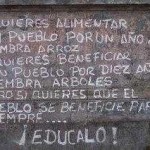 QUIERES ALIMENTAR
PUEBLO POR UN AÑO,
EMBRA ARROZ
QUIERES BENEFICIAR
PUEBLO POR DIEZ AÑ
EMBRA ARBOLES
SI QUIERES QUE EL
EBLO SE BENEFICIE PAR
EMPRE....
¡EDUCALO!